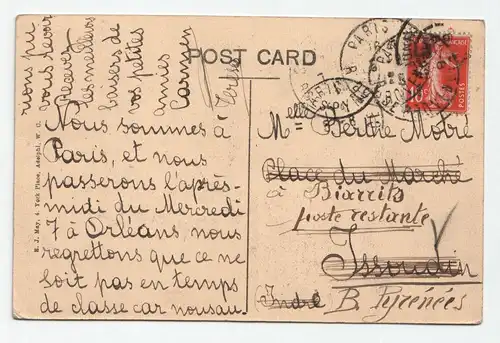 POST CARD
Nous sommes à
Paris, et nous
passerons l'après-
midi du Mercredi
7 à Orléans, nous
regrettons que ce ne
soit pas en temps
de classe car nousau-
rions pu
vous revoir
Recevez
les meilleurs
baisers de
vos petites
amies
Carmen
Térèse
Melle Berthe Motre
Place du Marché
à Biarritz
poste restante
Issoudun
Indre B. Pyrénées
E. J. May, 4. York Place, Adelphi, W. C.
PARIS
POSTES
10